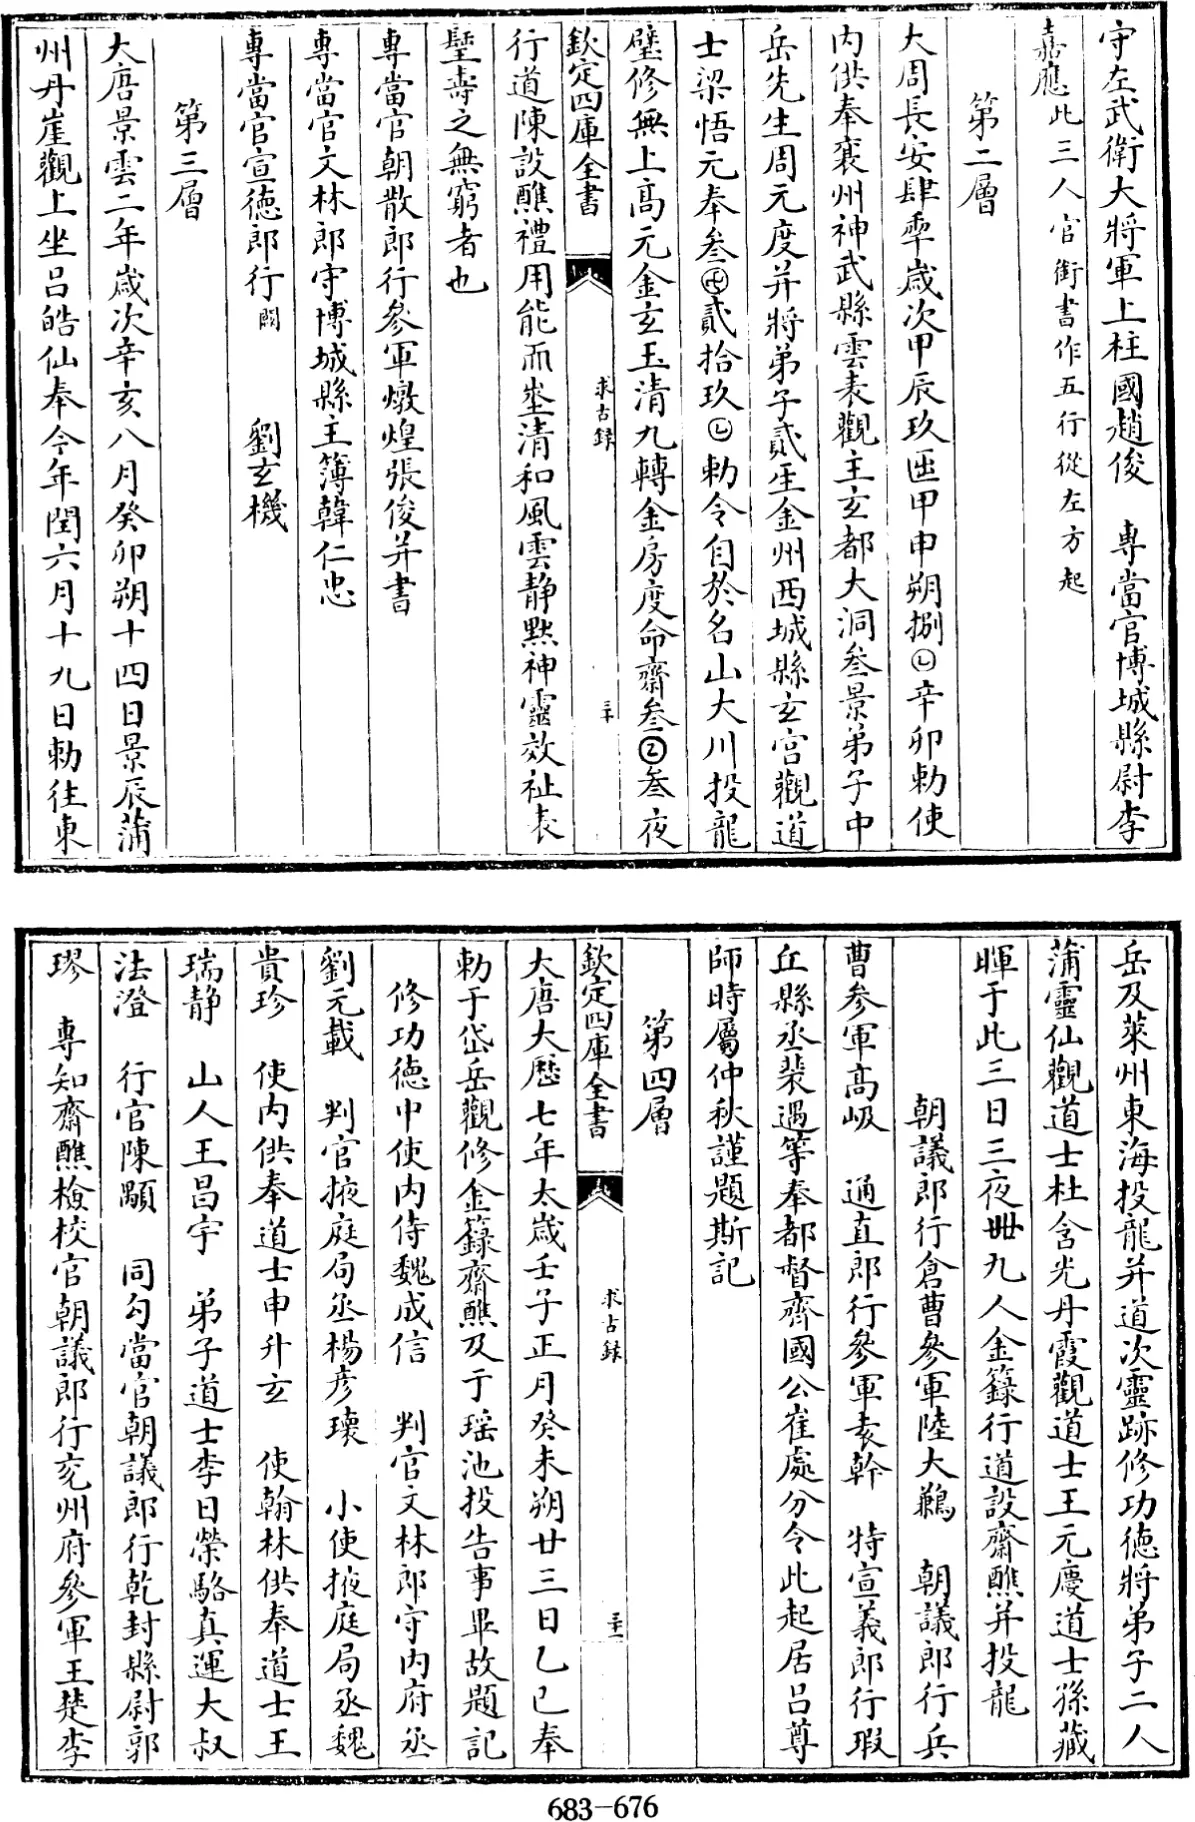 守左武衛大將軍上柱國趙俊　專當官博城縣尉李
嘉應此三人官銜書作五行從左方起
第二層
大周長安肆𠡦歲次甲辰玖𠥱甲申朔捌㋡辛卯勅使
內供奉襄州神武縣雲表觀主玄都大洞叁景弟子中
岳先生周元度并將弟子貳𤯔金州西城縣玄宮觀道
士梁悟元奉叁貳拾玖勅令自於名山大川投龍
璧修無上高元金玄玉清九轉金房度命齋叁叁夜
欽定四庫全書
求古錄
三十
行道陳設醮禮用能而坔清和風雲靜默神靈效祉表
聖壽之無窮者也
專當官朝散郎行參軍燉煌張俊并書
專當官文林郎守博城縣主簿韓仁忠
專當官宣德郎行闕　劉玄機
第三層
大唐景雲二年歲次辛亥八月癸卯朔十四日景辰蒲
州丹崖觀上坐呂皓仙奉今年閏六月十九日勅往東
岳及萊州東海投龍并道次靈跡修功德將弟子二人
蒲靈仙觀道士杜含光丹霞觀道士王元慶道士孫藏
暉于此三日三夜卌九人金籙行道設齋醮并投龍
朝議郎行倉曹參軍陸大鵜　朝議郎行兵
曹參軍高岋　通直郎行參軍袁幹　特宣義郎行瑕
丘縣丞裴遇等奉都督齊國公崔處分令此起居呂尊
師時屬仲秋謹題斯記
第四層
欽定四庫全書
求古錄
三十一
大唐大歷七年太歲壬子正月癸未朔廿三日乙巳奉
勅于岱岳觀修金籙齋醮及于瑤池投告事畢故題記
修功德中使內侍魏成信　判官文林郎守內府丞
劉元載　判官掖庭局丞楊彥瓌　小使掖庭局丞魏
貴珍　使內供奉道士申升玄　使翰林供奉道士王
瑞靜　山人王昌宇　弟子道士李日榮駱真運大叔
法澄　行官陳顒　同勾當官朝議郎行乾封縣尉郭
璆　專知齋醮檢校官朝議郎行兗州府參軍王楚李
683-676